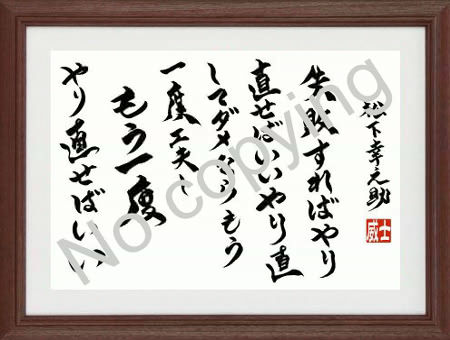 松下幸之助
威士
失敗すればやり
直せばいいやり直
してダメならもう
一度工夫し
もう一度
やり直せばいい
No copying